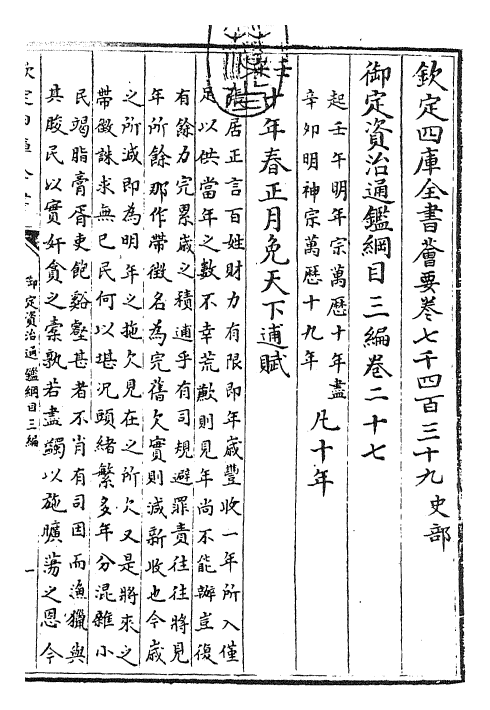 欽定四庫全書薈要卷七千四百三十九 史部
御定資治通鑑綱目三編卷二十七
起壬午明神宗萬歷十年盡
辛卯明神宗萬歷十九年 凡十年
壬 十年春正月免天下逋賦
張居正言百姓財力有限即年歲豐收一年所入僅
足以供當年之數不幸荒歉則見年尚不能辦豈復
有餘力完累歲之積逋乎有司規避罪責往往將見
年所餘那作帶徵名為完舊欠實則減新收也今歲
之所減即為明年之拖欠見在之所欠又是將來之
帶徵誅求無已民何以堪況頭緒繁多年分混雜小
民竭脂膏胥吏飽谿壑甚者不肖有司因而漁獵與
其朘民以實奸貪之橐孰若盡蠲以施曠蕩之恩今
欽定四庫全書
御定資治通鑑綱目三編
一